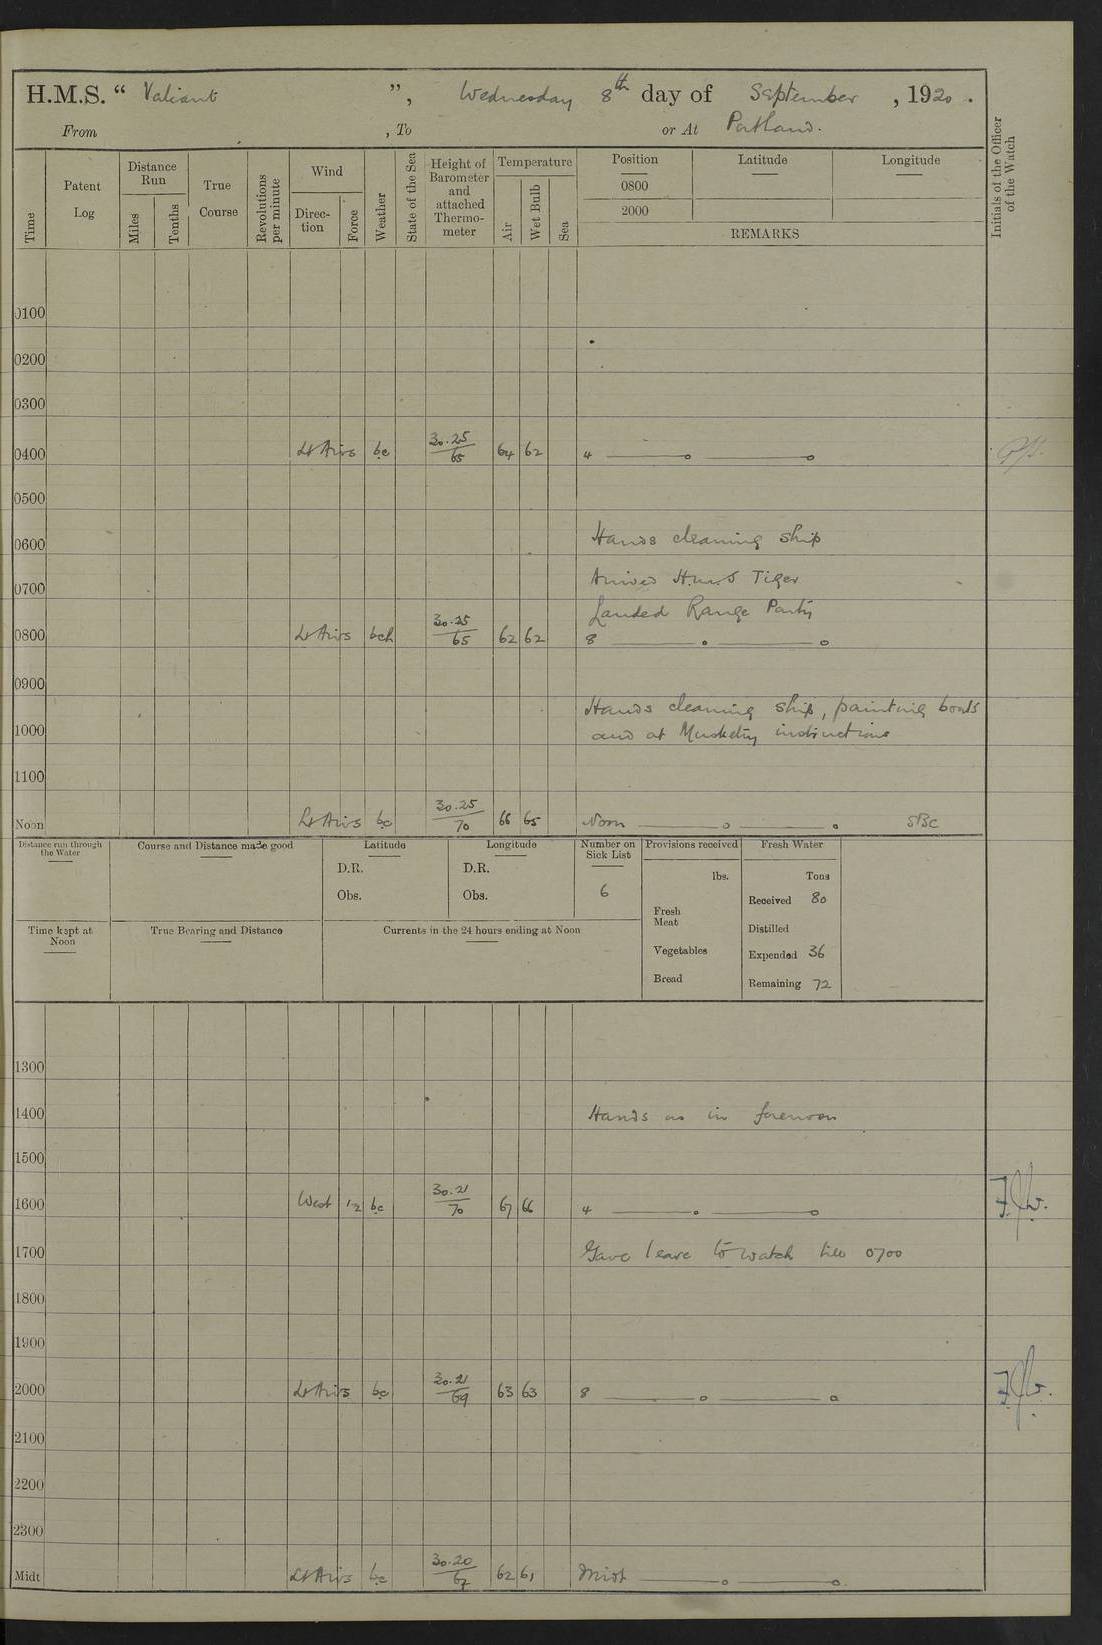 H.M.S. “ Valiant ”, Wednesday 8th day of September , 1920 .
From , To or At Portland.
Time
Patent Log
Distance Run
Miles
Tenths
True Course
Revolutions per minute
Wind
Direc-tion
Force
Weather
State of the Sea
Height of Barometer and attached Thermo-meter
Temperature
Air
Wet Bulb
Sea
Position Latitude Longitude
0800
2000
REMARKS
Initials of the Officer of the Watch
0100
0200
0300
0400 Lt Airs bc 30.25/65 64 62 4
0500
0600 Hands cleaning ship
0700 Arrived H.M.S Tiger
Landed Range Party
0800 Lt Airs bch 30.25/65 62 62 8
0900
Hands cleaning ship, painting boats
1000 and at Musketry instructions
1100
Noon Lt Airs bc 30.25/70 66 65 Noon SBC
Distance run through the Water
Course and Distance made good
Latitude
D.R.
Obs.
Longitude
D.R.
Obs.
Number on Sick List
6
Provisions received
lbs.
Fresh Meat
Vegetables
Bread
Fresh Water
Tons
Received 80
Distilled
Expended 36
Remaining 72
Time kept at Noon
True Bearing and Distance
Currents in the 24 hours ending at Noon
1300
1400 Hands as in forenoon
1500
1600 West 1-2 bc 30.21/70 67 66 4
1700 Gave leave to watch till 0700
1800
1900
2000 Lt Airs bc 30.21/69 63 63 8
2100
2200
2300
Midt Lt Airs bc 30.20/67 62 61 Midt